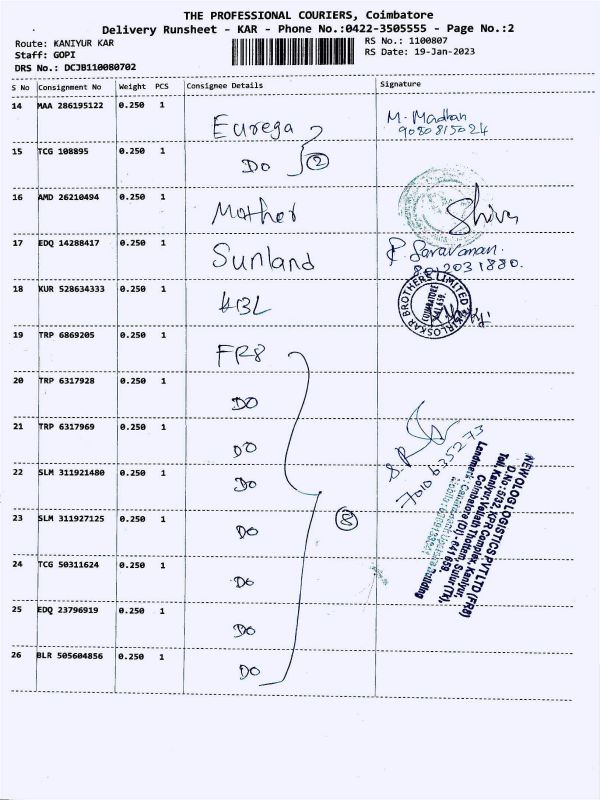 THE PROFESSIONAL COURIERS, Coimbatore
Delivery Runsheet - KAR - Phone No.:0422-3505555 - Page No.:2
Route: KANIYUR KAR
RS No.: 1100807
Staff: GOPI
RS Date: 19-Jan-2023
DRS No.: DCJB110080702
S No Consignment No Weight PCS Consignee Details Signature
14 MAA 286195122 0.250 1 Eurega M. Madhan
9080815024
15 TCG 108895 0.250 1 Do 2
16 AMD 26210494 0.250 1 Mother Shiva
17 EDQ 14288417 0.250 1 Sunland P. Saravanan.
8012031880.
18 KUR 528634333 0.250 1 KBL
KIRLOSKAR BROTHERS LIMITED
COIMBATORE
641 659.
19 TRP 6869205 0.250 1 FR8
20 TRP 6317928 0.250 1 DO
21 TRP 6317969 0.250 1 DO
22 SLM 311921480 0.250 1 DO
23 SLM 311927125 0.250 1 DO 8
24 TCG 50311624 0.250 1 DO
25 EDQ 23796919 0.250 1 DO
26 BLR 505604856 0.250 1 DO
S.R
7010635273
NEWOLOG LOGISTICS PVT LTD (FR8)
D.No:5/32, KPR Complex, Kaniyur
Toll, Kaniyur, Vellath Thottam, Sulur (TK),
Coimbatore (Dt) - 641 659.
Landmark: Canara Bank Upstairs Building